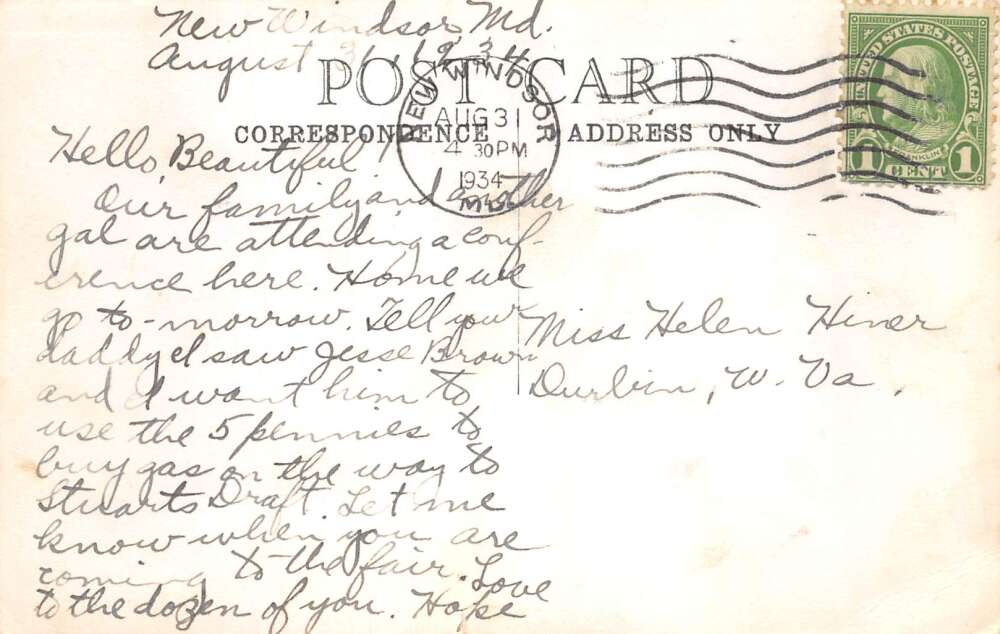 New Windsor, Md.
August 31, 1934
POST CARD
CORRESPONDENCE
ADDRESS ONLY
NEW WINDSOR
AUG 31
4 30 PM
1934
MD.
UNITED STATES POSTAGE
FRANKLIN
1 CENT 1
Hello, Beautiful!
Our family and another
gal are attending a conf-
erence here. Home we
go to-morrow. Tell your
daddy I saw Jesse Brown
and I want him to
use the 5 pennies to
buy gas on the way to
Stuarts Draft. Let me
know when you are
coming to the fair. Love
to the dozen of you. Hope
Miss Helen Hiner
Durbin, W. Va.